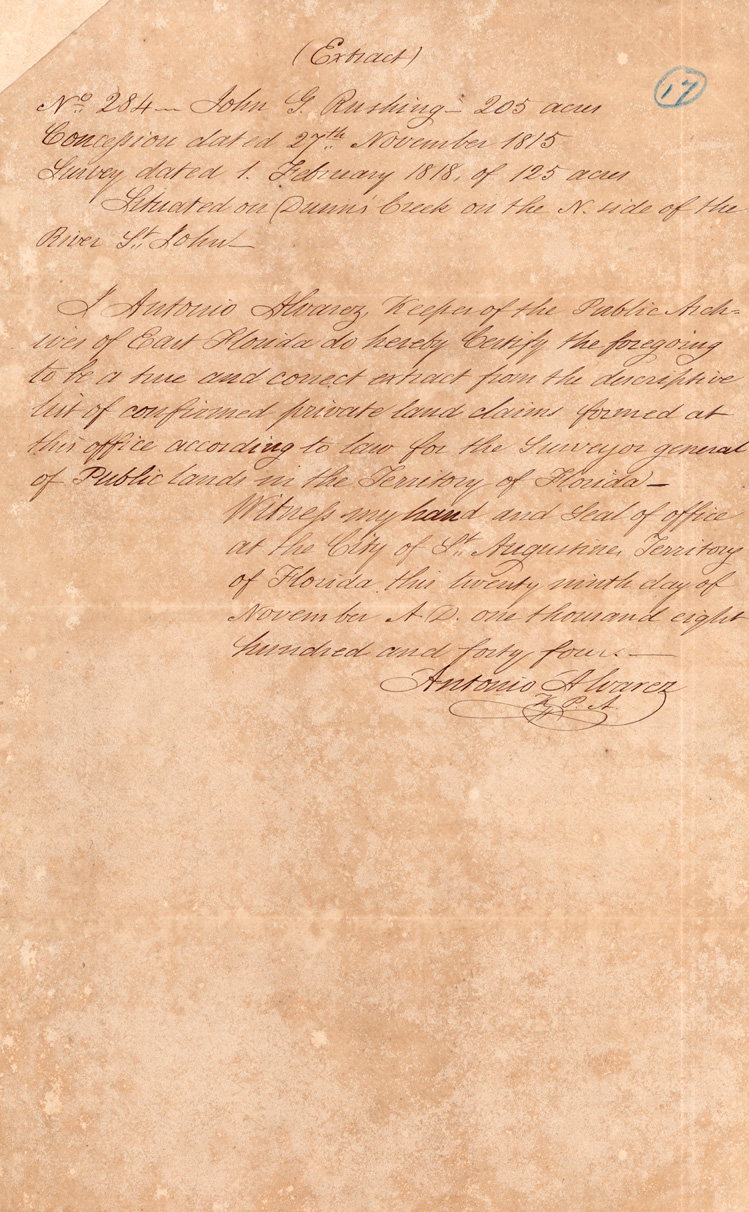 (Extract)
17
No. 284 — John G. Rushing — 205 acres
Concession dated 27th November 1815
Survey dated 1. February 1818, of 125 acres
Situated on Dunn's Creek on the N. side of the
River St. John —
I Antonio Alvarez, Keeper of the Public Arch-
ives of East Florida do hereby Certify the foregoing
to be a true and correct extract from the descriptive
list of confirmed private land claims formed at
this office according to law for the Surveyor general
of Public lands in the Territory of Florida —
Witness my hand and Seal of office
at the City of St. Augustine, Territory
of Florida this twenty ninth day of
November A.D. one thousand eight
hundred and forty four —
Antonio Alvarez
K. P. A.